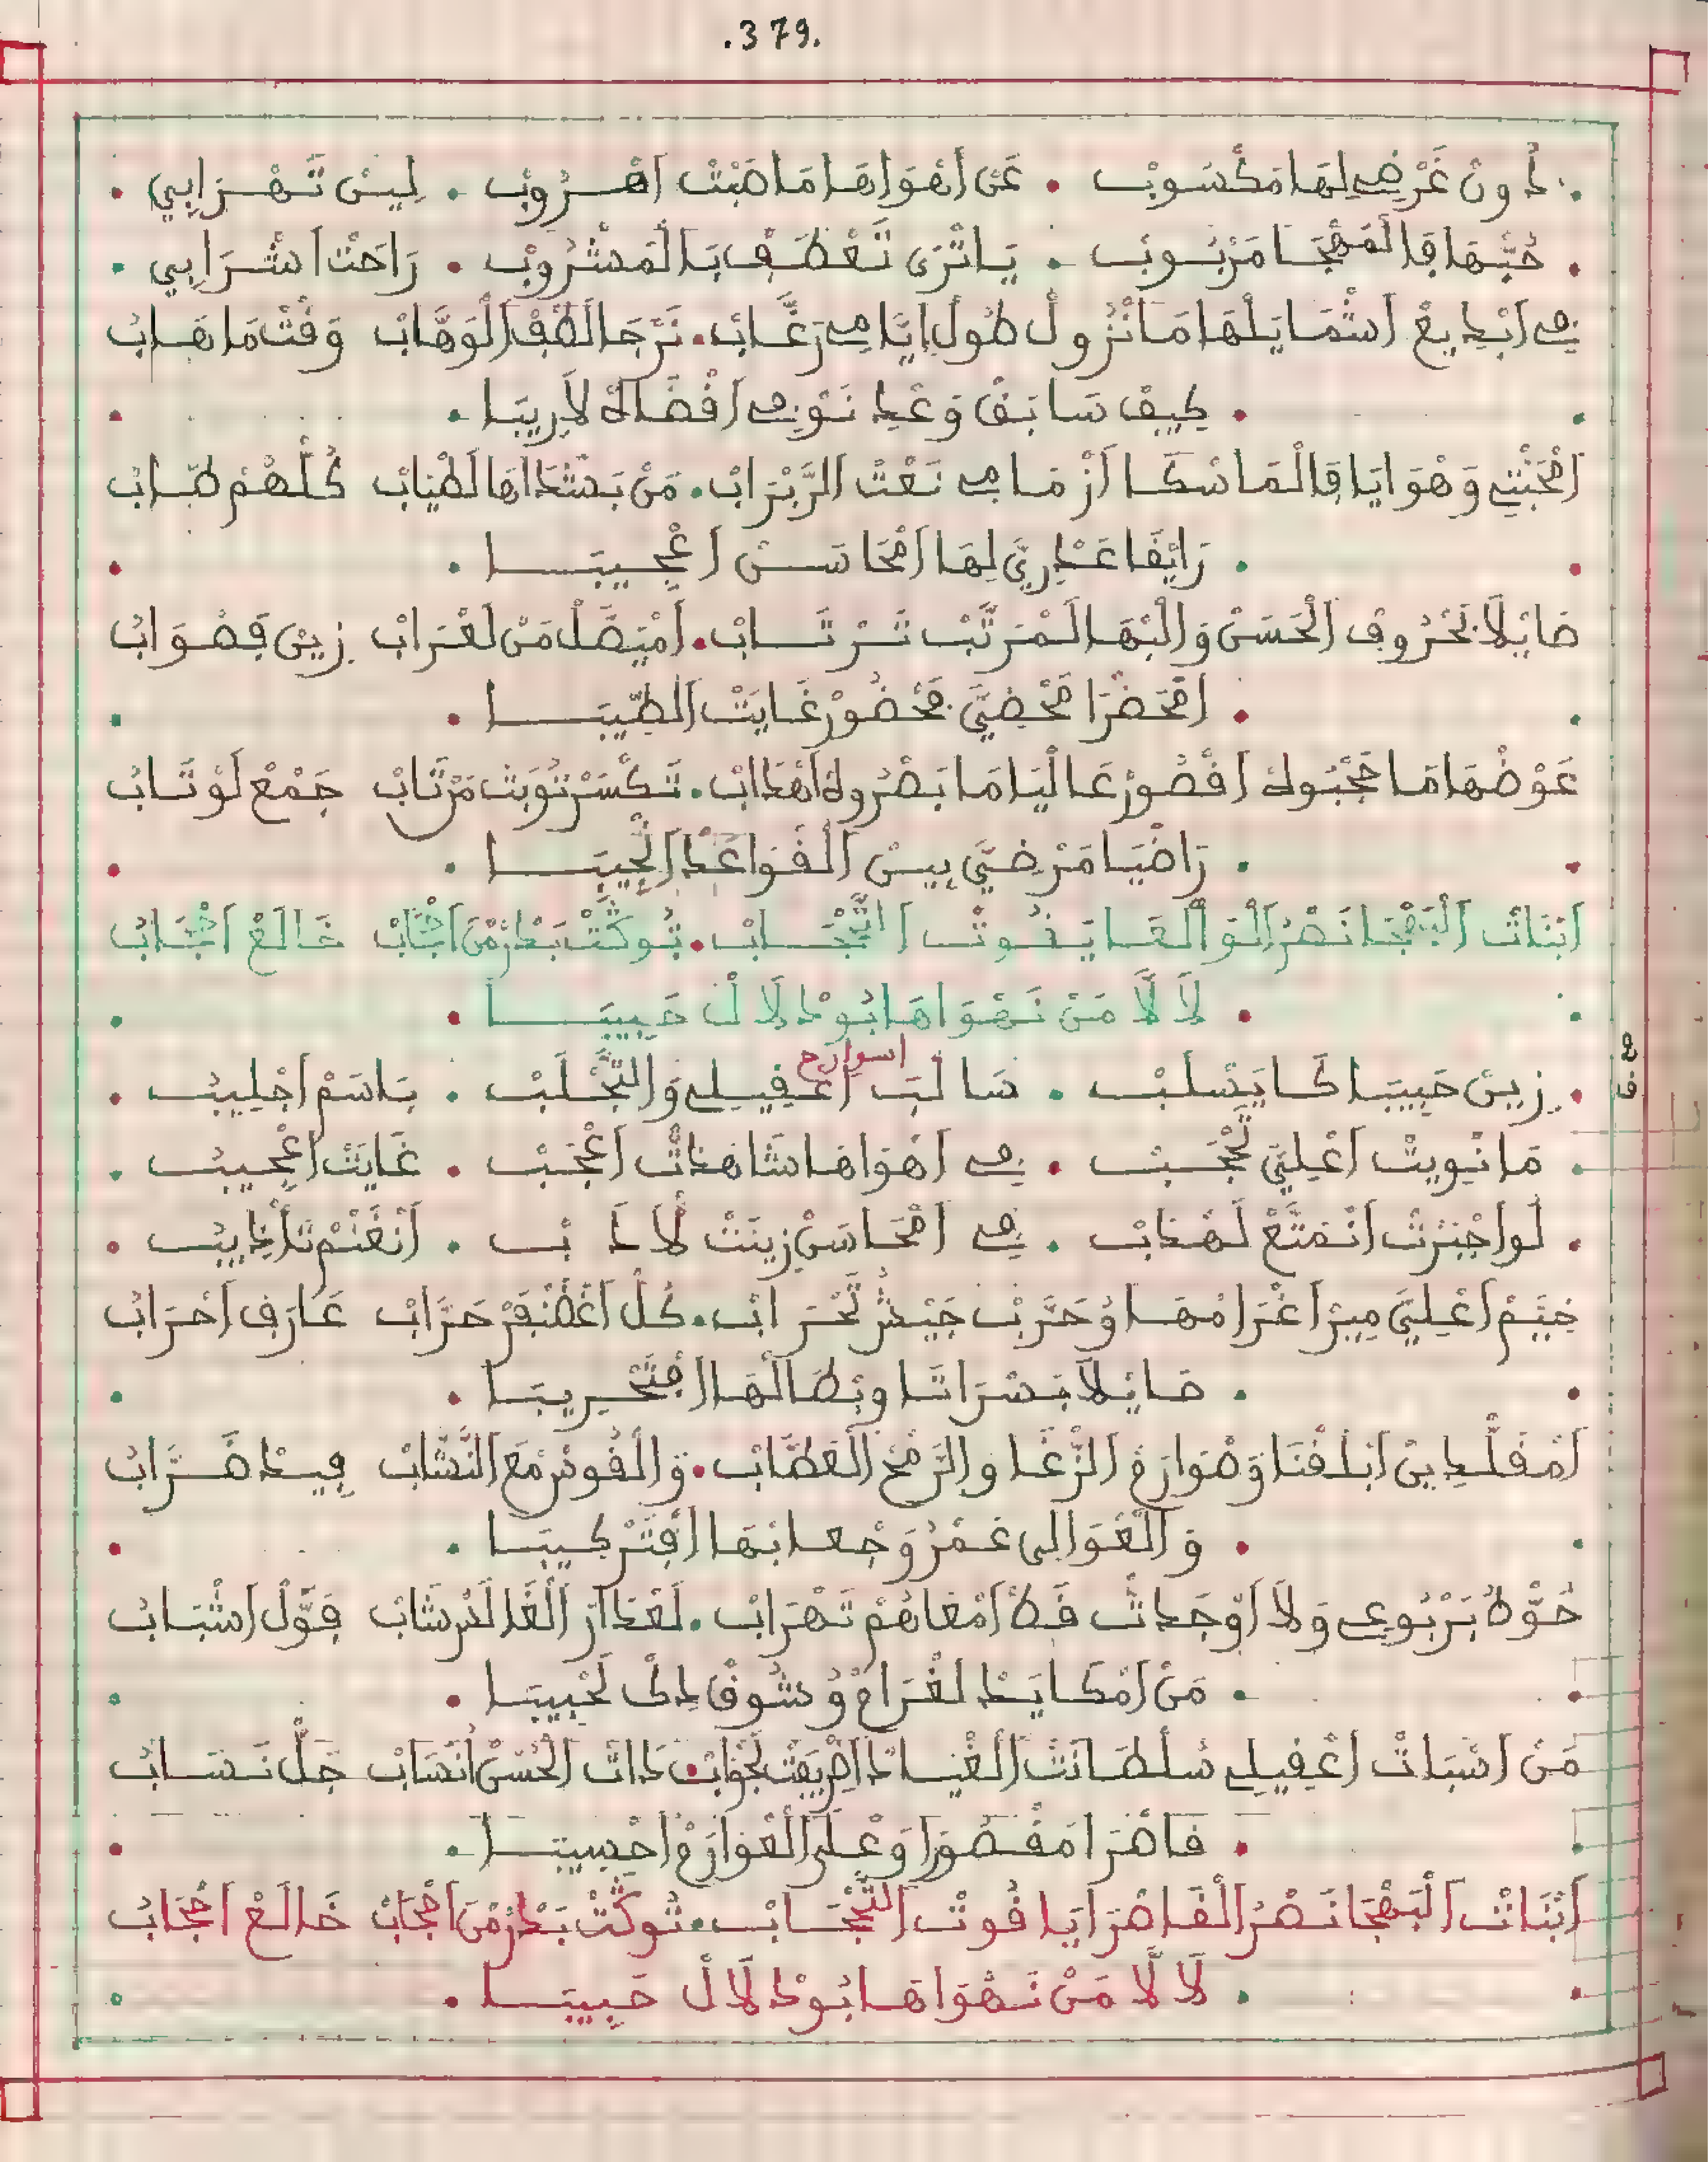 .379.
دُونْ غَرْضِي لِهَا مَكْسُوبْ . عَنْ أَهْوَاهَا مَا صَبْتْ اهْرُوبْ . لِيسْ تَهْرَابِي .
. حُبّْهَا فَالْمَهْجَا مَرْبُوبْ . يَا تْرَى تَعْطَفْ بَالْمَشْرُوبْ . رَاحْتْ اشْرَابِي .
فِي ابْدِيعْ اشْمَايَلْهَا مَا نْزُولْ طُولْ ايَّامِي رَغَّابْ . نَرْجَا لَطْفْ الْوَهَّابْ وَقْتْ مَا هَابْ
. كِيفْ سَابَقْ وَعْدْ نَوْفِي اقْضَاهْ لَارِيبَا .
امْحَبْتِي وَهْوَايَا فَالْمَاسْكَا ازْمَامِي نَعْتْ الزَّبْرَابْ . مَنْ بَسْتْدَاهَا لَطْيَابْ كُلّْهُمْ طَابْ
. رَايْفَا عَدْرِيَّ لِهَا امْحَاسَنْ اعْجِيبَا .
صَايْلَا بَحْرُوفْ الْحَسَنْ وَالْبْهَا الْمْرَتَّبْ تَرْتَابْ . امْيَصَّلْ مَنْ لَعْرَابْ زِينْ فَصْوَابْ
. امْحَضْرَا مَحْضِيَّ بَحْضُورْ غَايَتْ الطِّيبَا .
عَوْضْهَا مَا يَحْجْبُوهْ اقْصُورْ عَالْيَا مَا بَصْرُوهْ اهْدَابْ . تَكْسَرْ تُوبَتْ مَرْتَابْ جَمْعْ لَوْ تَابْ
. رَاضْيَا مَرْضِيَّ بِيسْ الْقَوَاعْدْ الْحِيبَا .
ابْنَاتْ الْبَهْجَا نَصْرْ الْوَالْعَا يَفُوتْ التَّحْجَابْ . تُوكَّتْ بَدْرْ مْنْ احْجَابْ خَالَعْ احْجَابْ
. لَالَّا مَنْ نَهْوَاهَا بُودْلَالْ حَبِيبَا .
اسوارح
. زِينْ حَبِيبَا كَا يَسْلَبْ . سَالَبْ اعْقِيلِي وَالتَّجْلَبْ . بَاسَمْ اجْلِيبْ .
. مَا نْوِيتْ اعْلِيَّ تَحْجَبْ . فِي اهْوَاهَا شَاهَدْتْ اعْجَبْ . غَايَتْ اعْجِيبْ .
. لَو اجْبَرْتْ انْمَتَّعْ لَهْدَبْ . فِي امْحَاسَنْ زِينَتْ لَادَبْ . انْغَنْمْ تَادِيبْ .
خِيَّمْ اعْلِيَّ مِيرْ اغْرَامْهَا وْحَزَّبْ جَيْشْ لَحْرَابْ . كُلْ اغْضَنْفَرْ حَرَّابْ عَارَفْ احْرَابْ
. صَايْلَا بَسْرَاتَا وبْطَالْهَا افْتَحْرِيبَا .
امْقَلّْدِينْ ابْلَفْنَا وَصْوَارَمْ الزّْغَا والرَّمْحْ الْعَطَّابْ . وَالْقُوسْ مَعَ النَّشَّابْ فِيدْ ضَرَّابْ
. وَالْعْوَالِي عَمْرُو وَجْعَابْهَا افْتَرْكِيبَا .
خُوَّدْ بَرْبُوعِي وَلَا اوْجَدْتْ قَدْ امْعَاهُمْ تَهْرَابْ . لَعْدَارْ الْغَالَسْ شَابْ فَوَّلْ اشْبَابْ
. مَنْ امْكَايَدْ لَغْرَامْ وُشُوقْ دِكْ لَحْبِيبَا .
مَنْ اسْبَاتْ اعْقِيلِي سُلْطَانَتْ الْغْيَادْ اظْرِيفَتْ لَجْوَابْ . دَاتْ الْحُسْنْ انْسَابْ جَلّْ نَسَابْ
. قَاصْرَا مَقْصُورَا وَعْلَى الْعْوَارَمْ احْسِيبَا .
ابْنَاتْ الْبَهْجَا نَصْرْ الْقَاصْرَا يَا فُوتْ التَّحْجَابْ . تُوكَّتْ بَدْرْ مْنْ احْجَابْ خَالَعْ احْجَابْ
. لَالَّا مَنْ نَهْوَاهَا بُودْلَالْ حَبِيبَا .